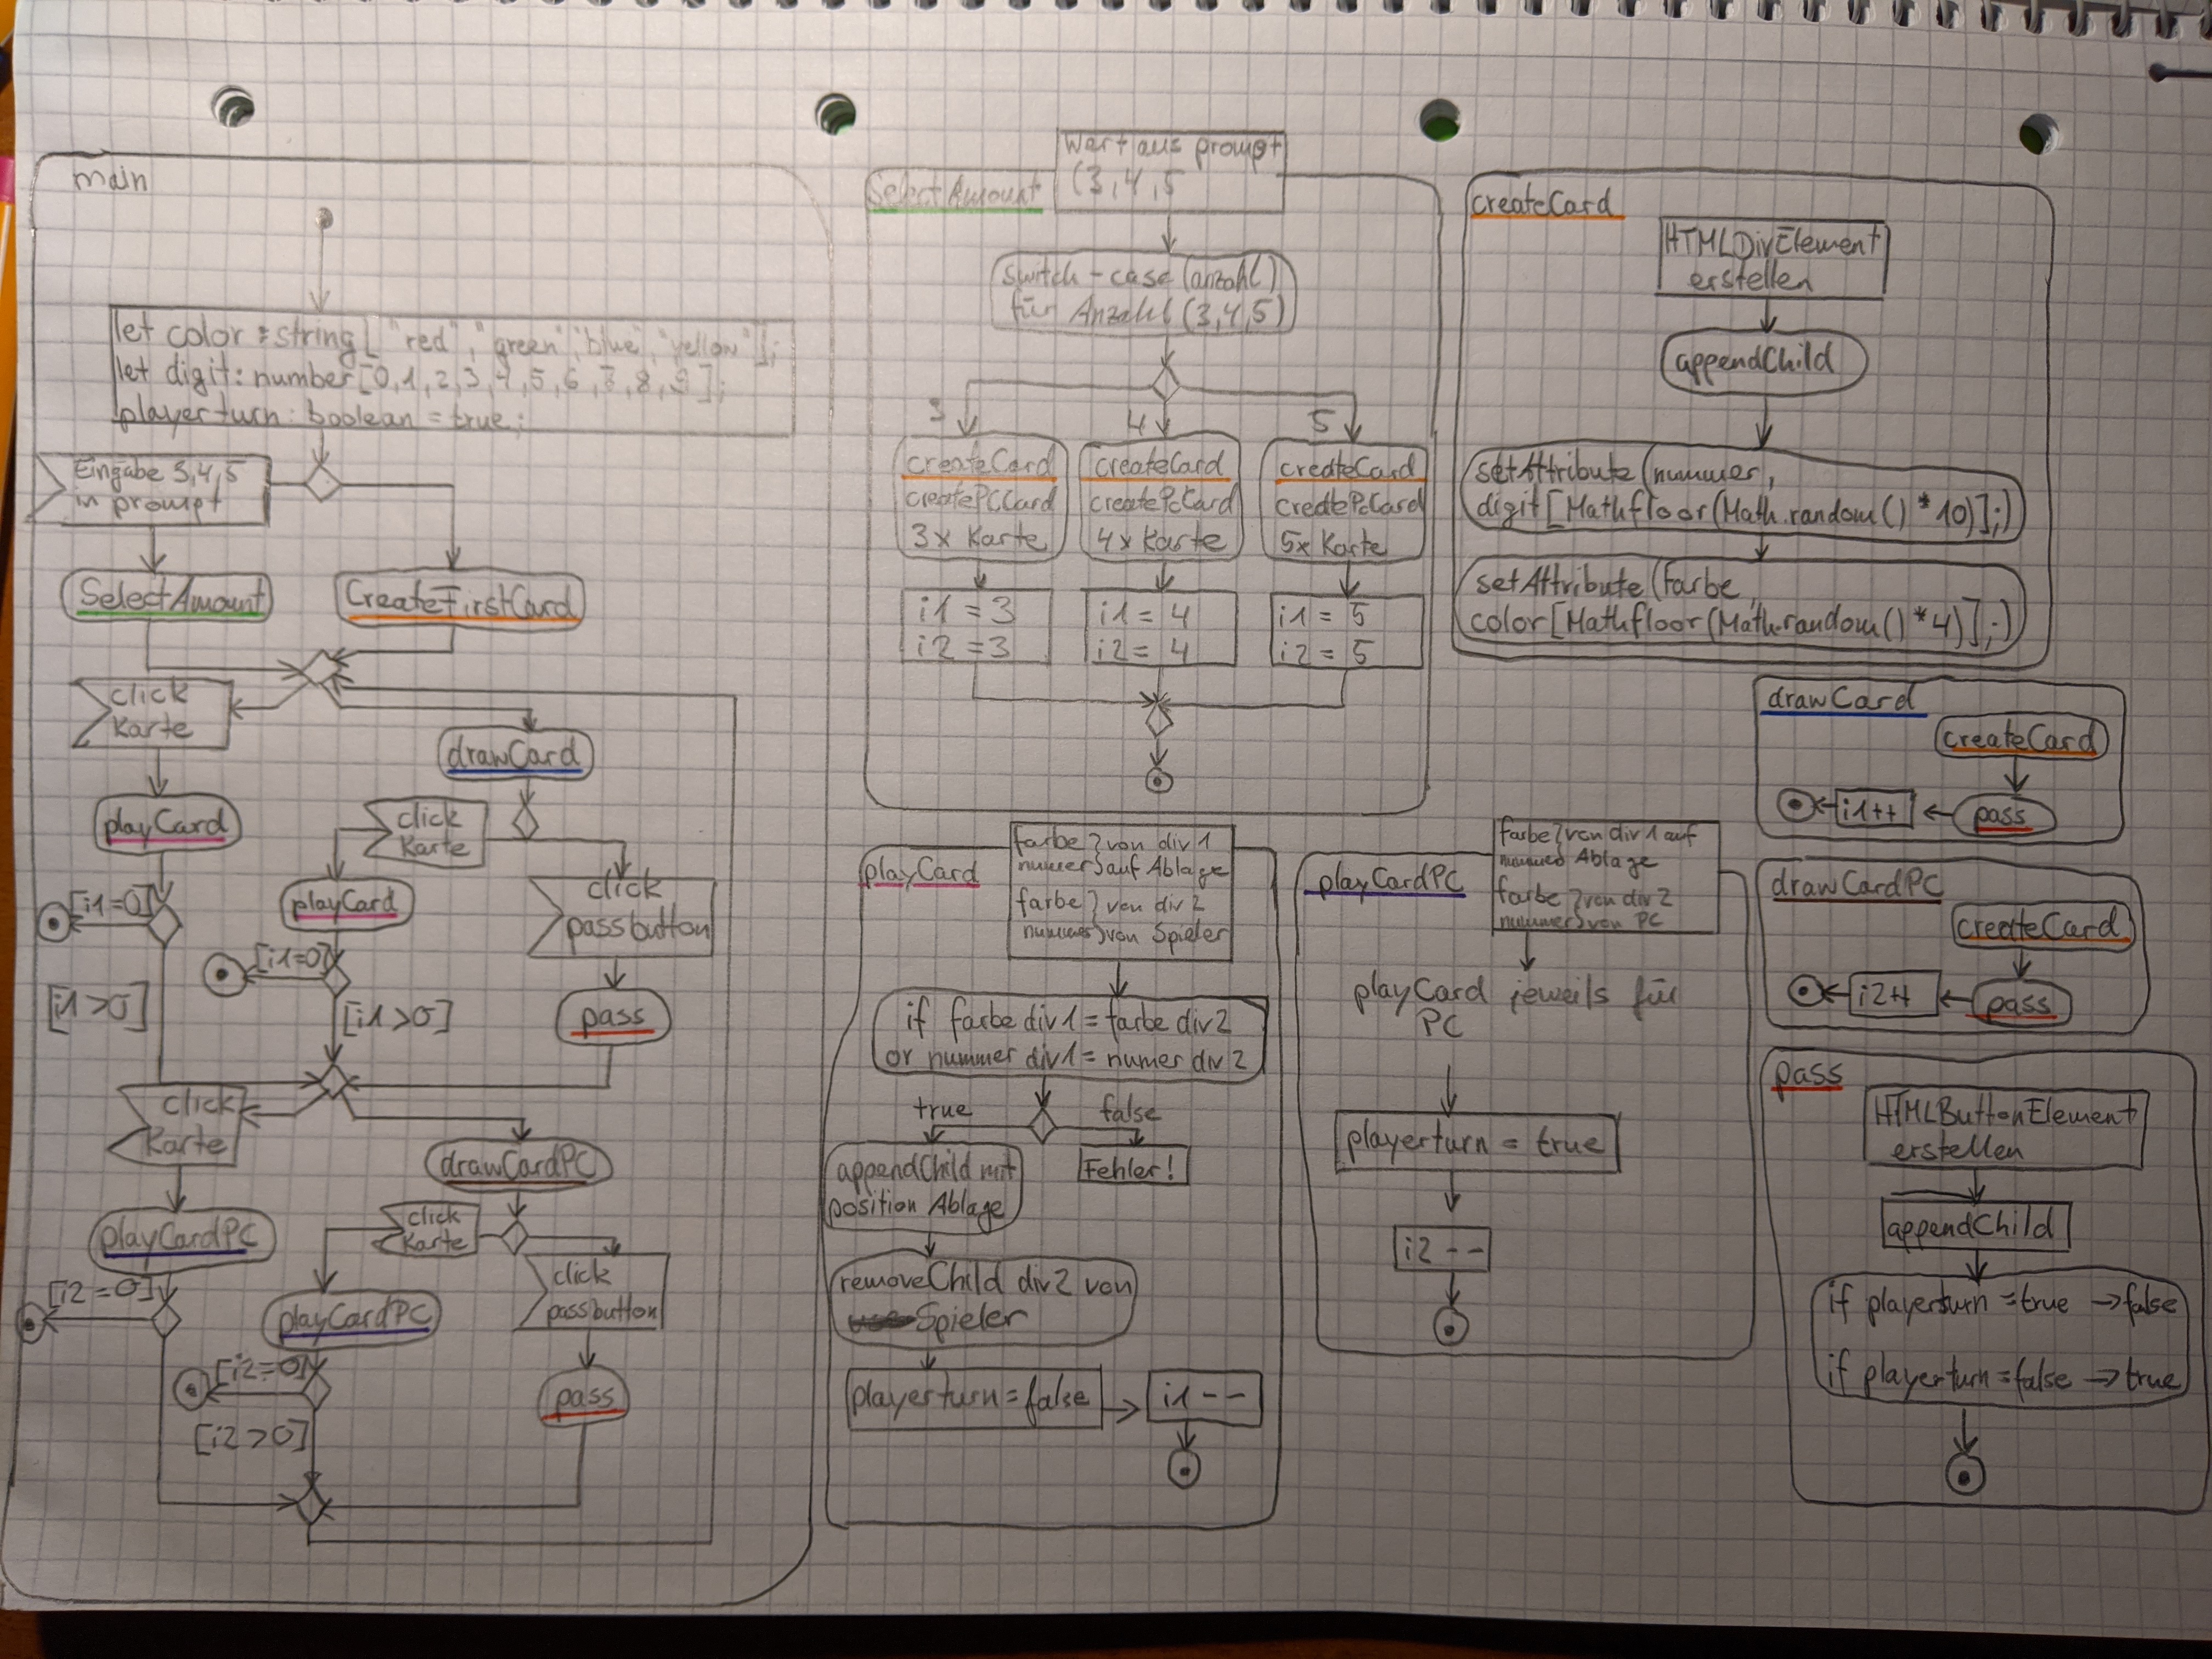 main
let color : string[ "red", "green", "blue", "yellow"];
let digit: number[0,1,2,3,4,5,6,7,8,9];
playerturn: boolean = true;
Eingabe 3,4,5
in prompt
SelectAmount
CreateFirstCard
click
Karte
drawCard
playCard
click
Karte
[i1=0]
playCard
click
passbutton
[i1=0]
[i1>0]
[i1>0]
pass
click
Karte
drawCardPC
playCardPC
click
Karte
click
passbutton
[i2=0]
playCardPC
[i2=0]
pass
[i2>0]
SelectAmount
Wert aus prompt
(3,4,5
switch-case (anzahl)
für Anzahl (3,4,5)
3
4
5
createCard
createPCCard
3x Karte
createCard
createPcCard
4x Karte
createCard
createPcCard
5x Karte
i1 = 3
i2 = 3
i1 = 4
i2 = 4
i1 = 5
i2 = 5
createCard
HTMLDivElement
erstellen
appendChild
setAttribute(nummer,
digit[Mathfloor(Math.random()*10)];)
setAttribute(farbe,
color[Mathfloor(Math.random()*4)];)
drawCard
createCard
pass
i1++
drawCardPC
createCard
pass
i2++
playCard
farbe } von div1
nummer } auf Ablage
farbe } von div 2
nummer } von Spieler
if farbe div1 = farbe div2
or nummer div1 = numer div2
true
false
appendChild mit
position Ablage
Fehler!
removeChild div2 von
Spieler
playerturn=false
i1 --
playCardPC
farbe } von div 1 auf
nummer Ablage
farbe } von div 2
nummer } von PC
playCard jeweils für
PC
playerturn = true
i2 --
pass
HTMLButtonElement
erstellen
appendChild
if playerturn =true → false
if playerturn =false → true